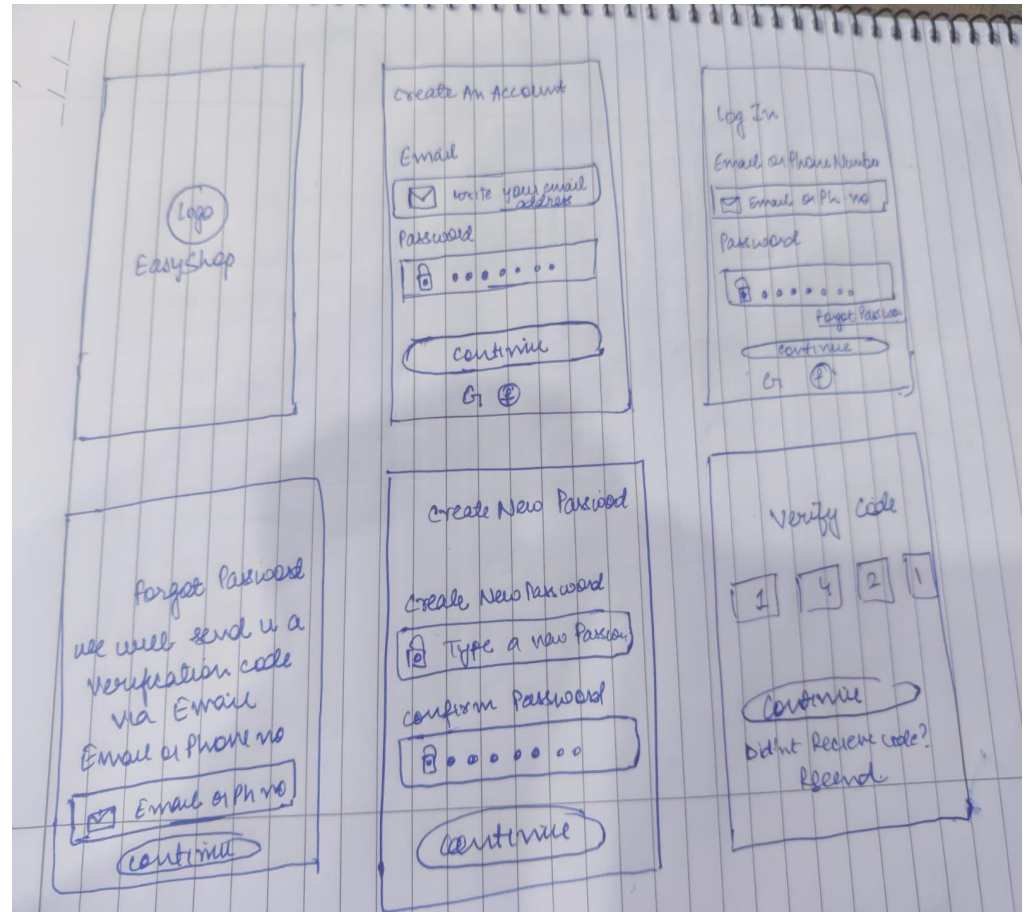 Logo
EasyShop
Create An Account
Email
write your email
address
Password
continue
G f
Log In
Email or Phone Number
Email or Ph.no
Password
Forgot Passwo
continue
G f
Forgot Password
we will send u a
verification code
via Email
Email or Phone no
Email or Ph no
continue
Create New Password
Create New Password
Type a new Passwo
confirm Password
continue
Verify Code
1 4 2 1
Continue
Did'nt Recieve code?
Resend